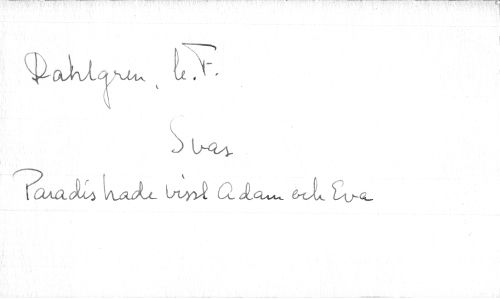 Dahlgren, C. F.
Svar
Paradis hade visst Adam och Eva